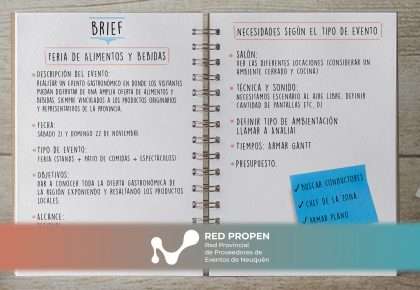 BRIEF
FERIA DE ALIMENTOS Y BEBIDAS
DESCRIPCIÓN DEL EVENTO:
REALIZAR UN EVENTO GASTRONÓMICO EN DONDE LOS VISITANTES
PUEDAN DISFRUTAR DE UNA AMPLIA OFERTA DE ALIMENTOS Y
BEBIDAS, SIEMPRE VINCULADOS A LOS PRODUCTOS ORIGINARIOS
Y REPRESENTATIVOS DE LA PROVINCIA.
FECHA:
SÁBADO 21 Y DOMINGO 22 DE NOVIEMBRE
TIPO DE EVENTO:
FERIA (STANDS + PATIO DE COMIDAS + ESPECTÁCULOS)
OBJETIVOS:
DAR A CONOCER TODA LA OFERTA GASTRONÓMICA DE
LA REGIÓN EXPONIENDO Y RESALTANDO LOS PRODUCTOS
LOCALES.
ALCANCE:
NECESIDADES SEGÚN EL TIPO DE EVENTO
SALÓN:
VER LAS DIFERENTES LOCACIONES (CONSIDERAR UN
AMBIENTE CERRADO Y COCINA)
TÉCNICA Y SONIDO:
NECESITAMOS ESCENARIO AL AIRE LIBRE. DEFINIR
CANTIDAD DE PANTALLAS ETC,
DEFINIR TIPO DE AMBIENTACIÓN
LLAMAR A ANALIA!
TIEMPOS: ARMAR GANTT
PRESUPUESTO.
BUSCAR CONDUCTORES
CHEF DE LA ZONA
ARMAR PLANO
RED PROPEN
Red Provincial
de Proveedores de
Eventos de Neuquén